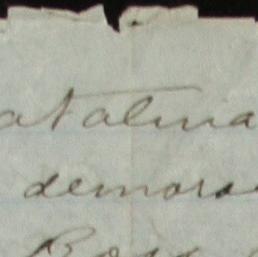 atalina
demoro